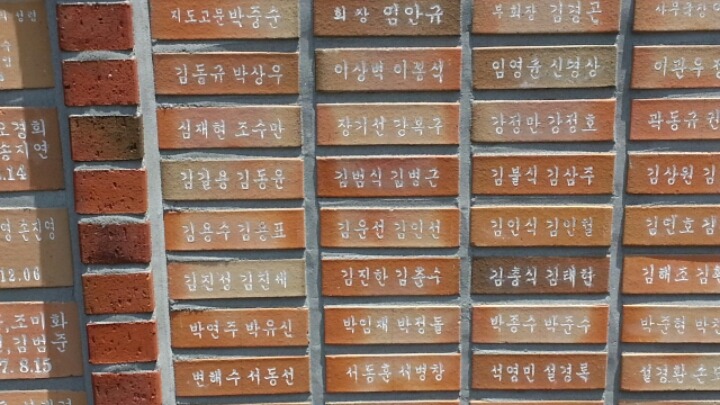 지도고문 박중순 회장 임안규 부회장 김경곤
김동규 박상우 이상벽 이봉식 임영균 신영상 이관우
심재현 조수만 장기선 강북주 강정만 강정호 곽동규
감길용 김동윤 김범식 김병근 김불식 김삼주 김상원
김용수 김용표 김운선 김인선 김인식 김인철 김민호
김진성 김진세 김진한 김춘수 김충식 김태한 김해조
박연주 박유신 박임재 박정돌 박종수 박준수 박준현
변해수 서동선 서동훈 서병창 석영민 설경록 설경환
오경회
송지연
.14
영 손지영
12.06
조미화
김범준
7.8.15